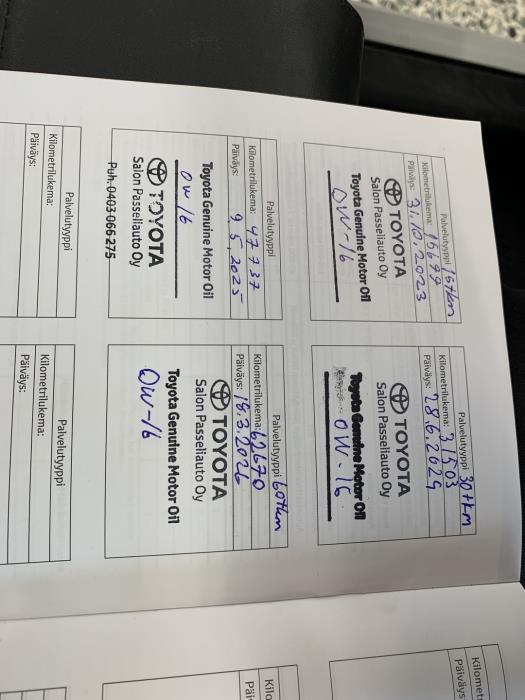 Palvelutyyppi 15tkm
Kilometrilukema: 15699
Päiväys: 31.10.2023
TOYOTA
Salon Passeliauto Oy
Toyota Genuine Motor Oil
0W-16
Palvelutyyppi 30tkm
Kilometrilukema: 31503
Päiväys: 28.6.2024
TOYOTA
Salon Passeliauto Oy
Toyota Genuine Motor Oil
0W-16
Palvelutyyppi
Kilometrilukema: 47737
Päiväys: 9.5.2025
Toyota Genuine Motor Oil
0W16
TOYOTA
Salon Passeliauto Oy
Puh. 0403 066 275
Palvelutyyppi 60tkm
Kilometrilukema: 62670
Päiväys: 18.3.2026
TOYOTA
Salon Passeliauto Oy
Toyota Genuine Motor Oil
0W-16
Palvelutyyppi
Kilometrilukema:
Päiväys:
Palvelutyyppi
Kilometrilukema:
Päiväys:
Kilomet
Päiväys
Kilo
Päi